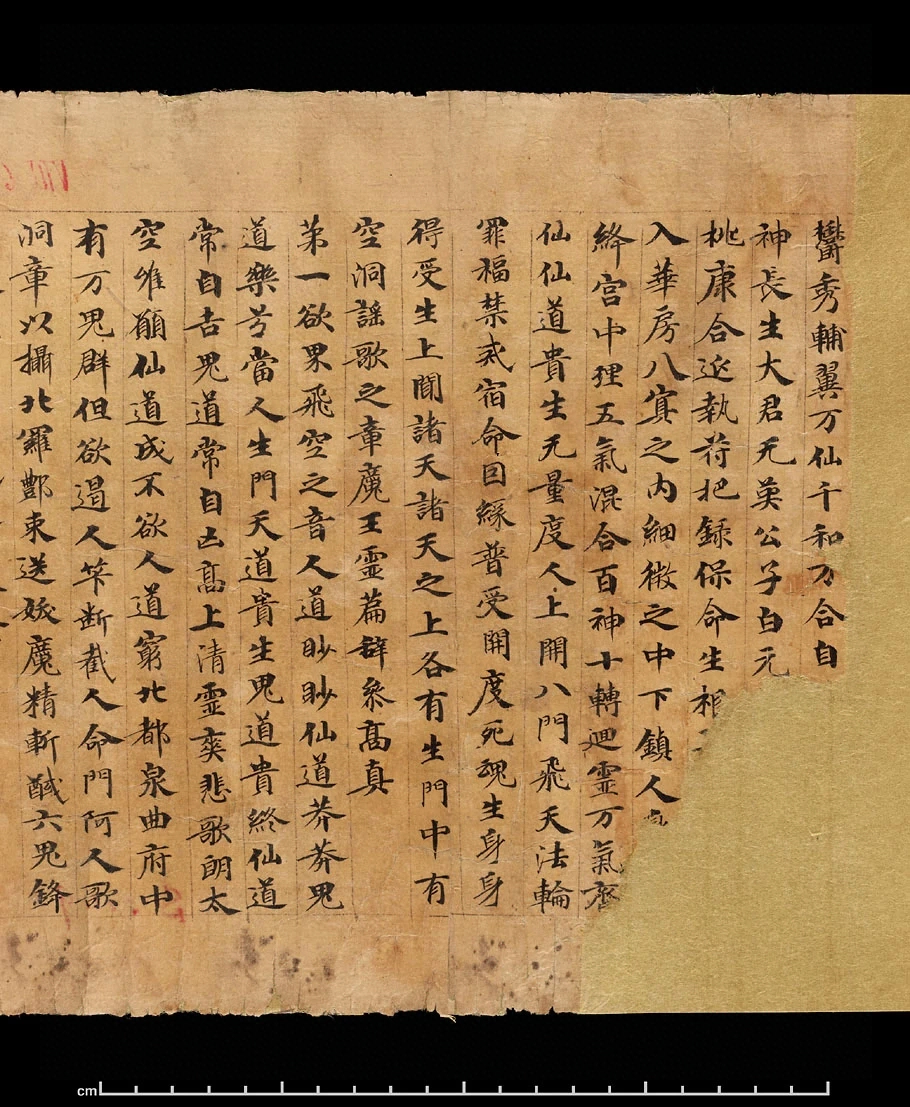 欝秀輔翼万仙千和万合自
神長生大君无英公子白元
桃康合延執苻把録保命生根
入華房八㝠之内細微之中下鎮人
絳宫中理五氣混合百神十轉迴靈万氣齊
仙仙道貴生无量度人上開八門飛天法輪
罪福禁戒宿命因緣普受開度死魂生身身
得受生上聞諸天諸天之上各有生門中有
空洞謡歌之章魔王靈篇辞参髙真
苐一欲界飛空之音人道眇眇仙道莽莽鬼
道樂兮當人生門天道貴生鬼道貴終仙道
常自吉鬼道常自凶髙上清靈爽悲歌朗太
空唯願仙道成不欲人道窮北都泉曲府中
有万鬼群但欲遏人筭断截人命門阿人歌
洞章以攝北羅酆束送妖魔精斬馘六鬼鋒